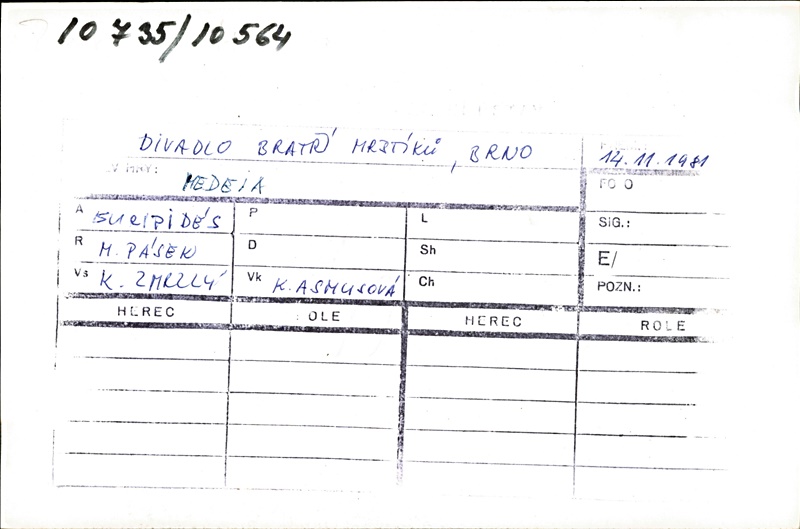 10 735/10 564
DIVADLO BRATŘÍ MRŠTÍKŮ, BRNO
14.11.1981
V HRY:
MEDEIA
FOTO
A EURIPIDÉS P L SIG.:
R M. PÁSEK D Sh E/
Vs K. ZMRZLÝ Vk K. ASMUSOVÁ Ch POZN.:
HEREC ROLE HEREC ROLE